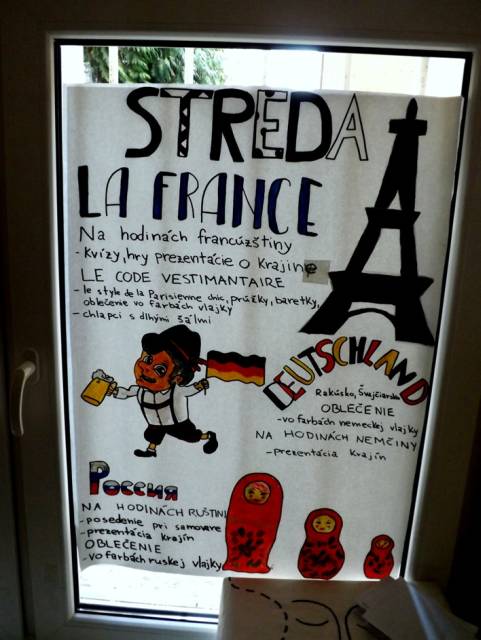 STREDA
LA FRANCE
Na hodinách francúzštiny
- kvízy, hry prezentácie o krajine
LE CODE VESTIMANTAIRE
- le style de la Parisienne chic, prúžky, baretky,
oblečenie vo farbách vlajky
- chlapci s dlhými šálmi
DEUTSCHLAND
Rakúsko, Švajčiarsko
OBLEČENIE
- vo farbách nemeckej vlajky
NA HODINÁCH NEMČINY
- prezentácia krajín
Россия
NA HODINÁCH RUŠTINY
- posedenie pri samovare
- prezentácia krajín
OBLEČENIE
- vo farbách ruskej vlajky